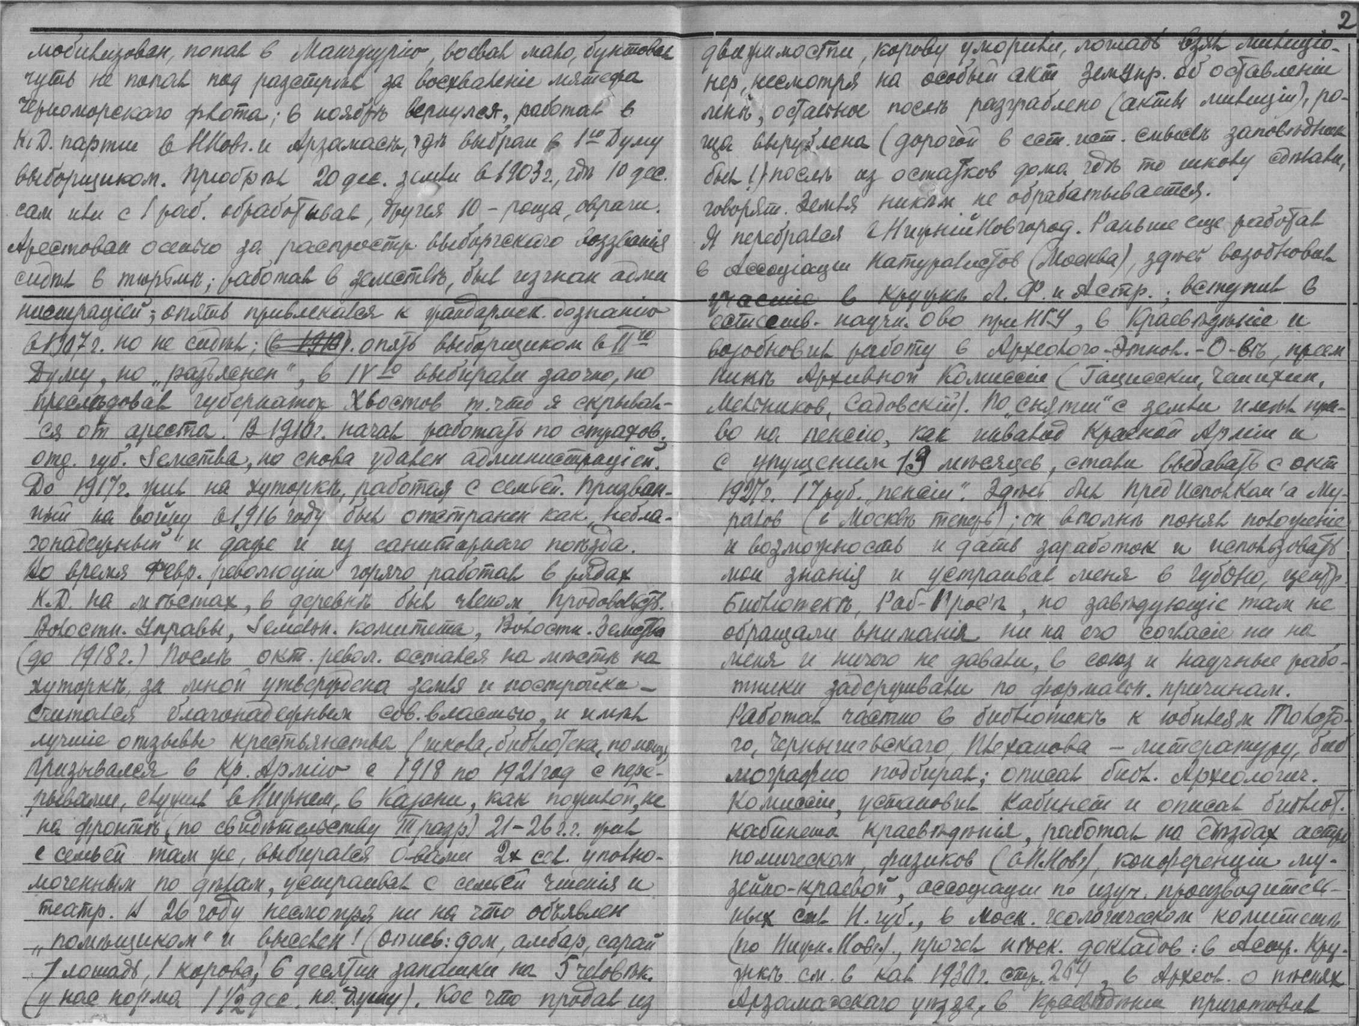 2
мобилизован, попал в Манчжурiю, воевал мало, бунтовал
чуть не попал под разстрел за восхваленiе мятежа
Черноморского флота; в ноябрѣ вернулся, работал в
К.Д. партiи в ННовг. и Арзамасѣ, гдѣ выбран в 1ую Думу
выборщиком. Прiобрѣл 20 дес. земли в 1903 г., гдѣ 10 дес.
сам или с 1 раб. обработывал, другiя 10 – роща, овраги.
Арестован осенью за распростр. выборгского воззванiя
сидѣл в тюрьмѣ; работал в земствѣ, был изгнан адми
нистрацiей; опять привлекался к жандармск. дознанiю
в 1907 г. но не сидѣл; (в 1910). опять выборщиком в IIую
Думу, но „разъяснен", в IVую выбирали заочно, но
преслѣдовал губернатор Хвостов т. что я скрывал-
ся от ареста. В 1910 г. начал работать по страхов.
отд. губ. Земства, но снова удален администрацiей.
До 1917 г. жил на хуторкѣ, работая с семьей. Призван-
ный на войну в 1916 году был отстранен как „небла-
гонадежный" и даже и из санитарного поѣзда.
Во время Февр. революцiи горячо работал в рядах
К.Д. на мѣстах, в деревнѣ был членом Продовольств.
Волостн. Управы, Земельн. комитета, Волостн. Земства
(до 1918 г.) Послѣ окт. револ. остался на мѣстѣ на
хуторкѣ, за мной утверждена земля и постройка –
считался благонадежным сов. властью, и имѣл
лучшiе отзывы крестьянства (школа, библiотека, помощь)
Призывался в Кр. Армiю с 1918 по 1921 год с пере-
рывами, служил в Нижнем, в Казани, как пожилой, не
на фронтѣ (по свидѣтельству 21–26 г.г. жил
с семьей там же, выбирался О-вами 2х сел. уполно-
моченным по дѣлам, устраивал с семьей чтенiя и
театр. В 26 году несмотря ни на что объявлен
„помѣщиком" и выселен! (опись: дом, амбар, сарай
1 лошадь, 1 корова, 6 десятин запашки на 5 человѣк.
(у нас норма 1 1/2 дес. на душу). Кое что продал из
движимости, корову уморили, лошадь взял милицiо-
нер, несмотря на особый акт Земупр. об оставленiи
мнѣ, остальное послѣ разграблено (акты милицiи), ро-
ща вырублена (дорогой в ест. ист. смыслѣ заповѣдник
был!) послѣ из остатков дома гдѣ то школу сдѣлали,
говорят. Земля никѣм не обрабатывается.
Я перебрался в Нижнiй Новгород. Раньше еще работал
в Ассоцiации Натуралистов (Москва), здѣсь возобновил
участiе в Кружкѣ Л. Ф. и Астр.; вступил в
естеств. научн. О-во при НГУ, в Краевѣдѣнiе и
возобновил работу в Археолого-Этнол. – О-вѣ, преем
никѣ Архивной Комиссiи (Гациcскiй, Чапихин,
Мельников, Садовскiй). По „снятiи" с земли имѣл пра-
во на пенсiю, как инвалид Красной Армiи и
с упущением 19 мѣсяцев, стали выдавать с окт
1927 г. 17 руб. „пенсiи". Здѣсь был ПредИсполком'а Му-
ралов (в Москвѣ теперь); он вполнѣ понял положенiе
и возможность и дать заработок и использовать
мои знанiя и устраивал меня в Губоно, центр.
Библiотекѣ, Раб-Прос'ѣ, но завѣдующiе там не
обращали вниманiя ни на его согласiе ни на
меня и ничего не давали, в союз и научные рабо-
тники задерживали по формальн. причинам.
Работал частно в библiотекѣ к юбилеям Толсто-
го, Чернышевского, Плеханова – литературу, биб
лiографiю подбирал; описал библ. Археологич.
Комиссiи, установил Кабинет и описал библiот.
кабинета краевѣдѣнiя, работал на съѣздах астро
номическом, физиков (в ННовг), конференцiи му-
зейно-краевой, ассоцiации по изуч. производитель-
ных сил Н. губ., в моск. геологическом комитетѣ
(по Нижн-Новг), прочел нѣск. докладов: в Астр. Кру-
жкѣ см. в кал 1930 г. стр. 264, в Археол. О пѣснях
Арзамасского уѣзда, в Краевѣдѣнiи приготовил